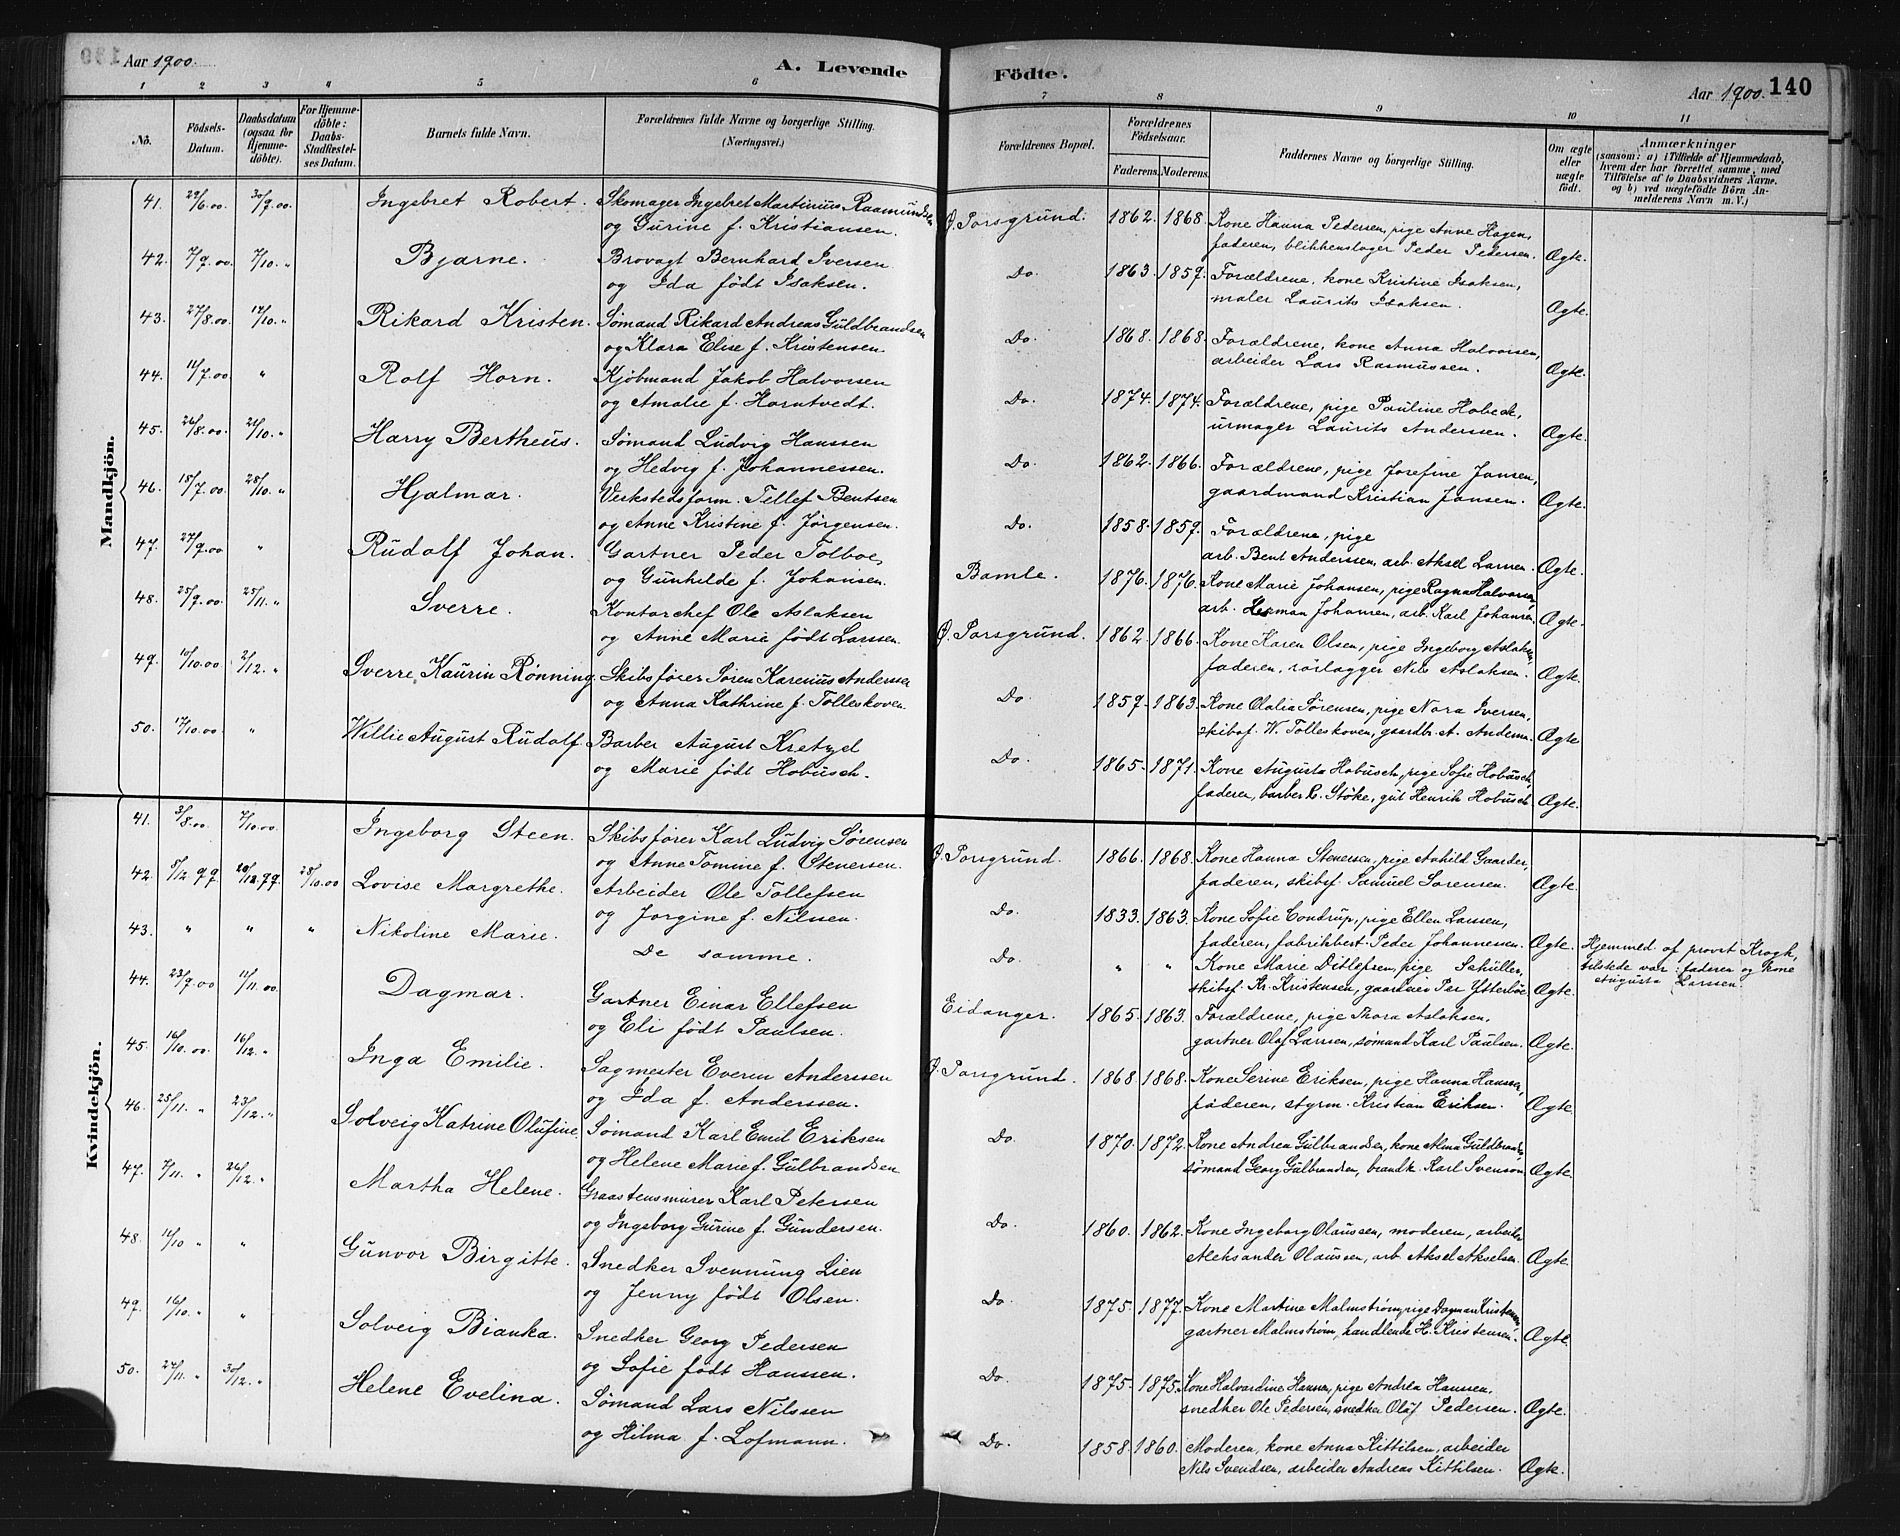 Aar 1900.
A. Levende Födte.
Aar 1900. 140
1 2 3 4 5 6 7 8 9 10 11
No.
Födsels-Datum.
Daabsdatum (ogsaa for Hjemme-döbte).
For Hjemme-döbte: Daabs-Stadfæstel-ses Datum.
Barnets fulde Navn.
Forældrenes fulde Navne og borgerlige Stilling. (Næringsvei.)
Forældrenes Bopæl.
Forældrenes Födselsaar.
Faderens. Moderens.
Faddernes Navne og borgerlige Stilling.
Om ægte eller uægte födt.
Anmærkninger
(saasom: a) i Tilfælde af Hjemmedaab,
hvem der har forrettet samme, med
Tilföielse af to Daabsvidners Navne.
og b) ved uægtefödte Börn An-
melderens Navn m. V.)
Mandkjön.
41. 29/6.00 30/9.00 Ingebret Robert. Skomager Ingebret Martinius Raamundsen
og Gurine f. Kristiansen.
Ø. Porsgrund. 1862. 1868. Kone Hanna Pedersen, pige Anne Hagen,
faderen, blikkenslager Peder Pedersen. Ægte.
42. 7/9.00 7/10. " Bjarne. Brovagt Bernhard Iversen
og Ida født Isaksen.
Do. 1863. 1859. Forældrene, kone Kristine Isaksen,
maler Laurits Isaksen. Ægte.
43. 27/8.00 14/10. " Rikard Kristen. Sømand Rikard Andreas Guldbrandsen
og Klara Elise f. Kristensen.
Do. 1868. 1868. Forældrene, kone Anna Halvorsen,
arbeider Lars Rasmussen. Ægte.
44. 11/7.00 " Rolf Horn. Kjöbmand Jakob Halvorsen
og Amalie f. Horntvedt.
Do. 1874. 1874. Forældrene, pige Pauline Hobeck,
urmager Laurits Anderssen. Ægte.
45. 26/8.00 21/10. " Harry Bertheus. Sømand Ludvig Hanssen
og Hedvig f. Johannessen.
Do. 1862. 1866. Forældrene, pige Josefine Jansen,
gaardmand Kristian Jansen. Ægte.
46. 15/7.00 28/10. " Hjalmar. Verkstedsform. Tellef Bentsen
og Anne Kristine f. Jørgensen.
Do. 1858. 1859. Forældrene, pige
arb. Bent Anderssen, arb. Aksel Larsen. Ægte.
47. 27/9.00 " Rudolf Johan. Gartner Peder Tolboe
og Gunhilde f. Johansen.
Bamle. 1876. 1876. Kone Marie Johansen, pige Ragna Halvorsen,
arb. Herman Johansen, arb. Karl Johansen. Ægte.
48. 25/9.00 25/11. " Sverre. Kontorchef Ole Aslaksen
og Anne Marie født Larssen.
Ø. Porsgrund. 1862. 1866. Kone Karen Olsen, pige Ingeborg Aslaksen,
faderen, rørlægger Nils Aslaksen. Ægte.
49. 10/10.00 2/12. " Sverre Kaurin Rønning. Skibsfører Søren Karenius Anderssen
og Anna Kathrine f. Tolleskoven.
Do 1859. 1863. Kone Olalia Sørensen, pige Nora Iversen,
skibsf. W. Tolleskoven, gaardbr. A. Andersen. Ægte
50. 17/10.00 " Willie August Rudolf. Barber August Kretzel
og Marie født Hobusch.
Do. 1865. 1871. Kone Augusta Hobusch, pige Sofie Hobusch,
faderen, barber R. Støke, gut Henrik Hobusch. Ægte.
Kvindekjön.
41. 3/8.00 7/10.00. Ingeborg Steen. Skibsfører Karl Ludvig Sørensen
og Anne Tomine f. Stenersen.
Ø. Porsgrund. 1866. 1868. Kone Hanna Stenersen, pige Anhild Gaarder,
faderen, skibsf. Samuel Sørensen. Ægte.
42. 5/12 99. 20/12.99. 28/10.00 Lovise Margrethe. Arbeider Ole Tollefsen
og Jorgine f. Nilsen.
Do. 1833. 1863. Kone Sofie Condrup, pige Ellen Larssen,
faderen, fabrikbest. Peder Johannessen. Ægte.
43. " " " Nikoline Marie. De samme.
Do. " " Kone Marie Ditlefsen, pige Schüller,
skibsf. Kr. Kristensen, gaardeier Per Ytterbøe Ægte.
Hjemmed. af provst Krogh,
tilstede var: faderen og kone
Augusta Larssen.
44. 23/9.00 11/11.00. Dagmar. Gartner Einar Ellefsen
og Eli født Paulsen.
Eidanger. 1865. 1863. Forældrene, pige Thora Aslaksen,
gartner Olaf Larssen, sømand Karl Paulsen. Ægte.
45. 16/10.00 16/12. " Inga Emilie. Sagmester Even Anderssen
og Ida f. Anderssen.
Ø. Porsgrund. 1868. 1868. Kone Serine Eriksen, pige Hanna Hanssen,
faderen, styrm. Kristian Eriksen. Ægte.
46. 25/11. " 23/12. " Solveig Katrine Olufine. Sømand Karl Emil Eriksen
og Helene Marie f. Gulbrandsen
Do. 1870. 1872. Kone Andrea Gulbrandsen, kone Alma Guldbrandsen,
sømand Georg Gulbrandsen, brandk. Karl Svenson Ægte.
47. 7/11. " 26/12. " Martha Helene. Graastensmurer Karl Petersen
og Ingeborg Gurine f. Gundersen.
Do. 1860. 1862. Kone Ingeborg Olaussen, moderen, arbeider
Aleksander Olaussen, arb. Aksel Akselsen. Ægte.
48. 14/10 " " Gunvor Birgitte. Snedker Svennung Lien
og Jenny født Olsen.
Do. 1875. 1877. Kone Martine Malmstrøm, pige Dagmar Kristensen,
gartner Malmstrøm, handlende H. Kristensen. Ægte.
49. 16/10. " " Solveig Bianka. Snedker Georg Pedersen
og Sofie født Hanssen.
Do. 1875. 1875. Kone Halvardine Hansen, pige Andrea Hanssen,
snedker Ole Pedersen, snedker Oluf Pedersen. Ægte.
50. 24/11. " 30/12. " Helene Evelina. Sømand Lars Nilssen
og Hilma f. Lofmann.
Do. 1858. 1860. Moderen, kone Anna Kittilsen, arbeider
Nils Svendsen, arbeider Andreas Kittilsen. Ægte.